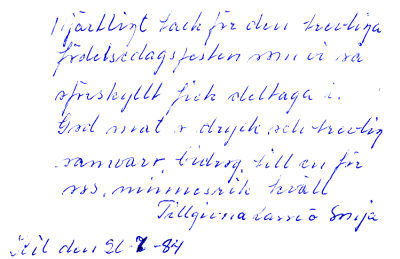 Hjärtligt tack för den trevliga
födelsedagsfesten som vi så
oförskyllt fick deltaga i.
God mat o dryck och trevlig
samvaro, bidrog till en för
oss, minnesrik kväll
Tillgivna Sonja
den 21-7-84